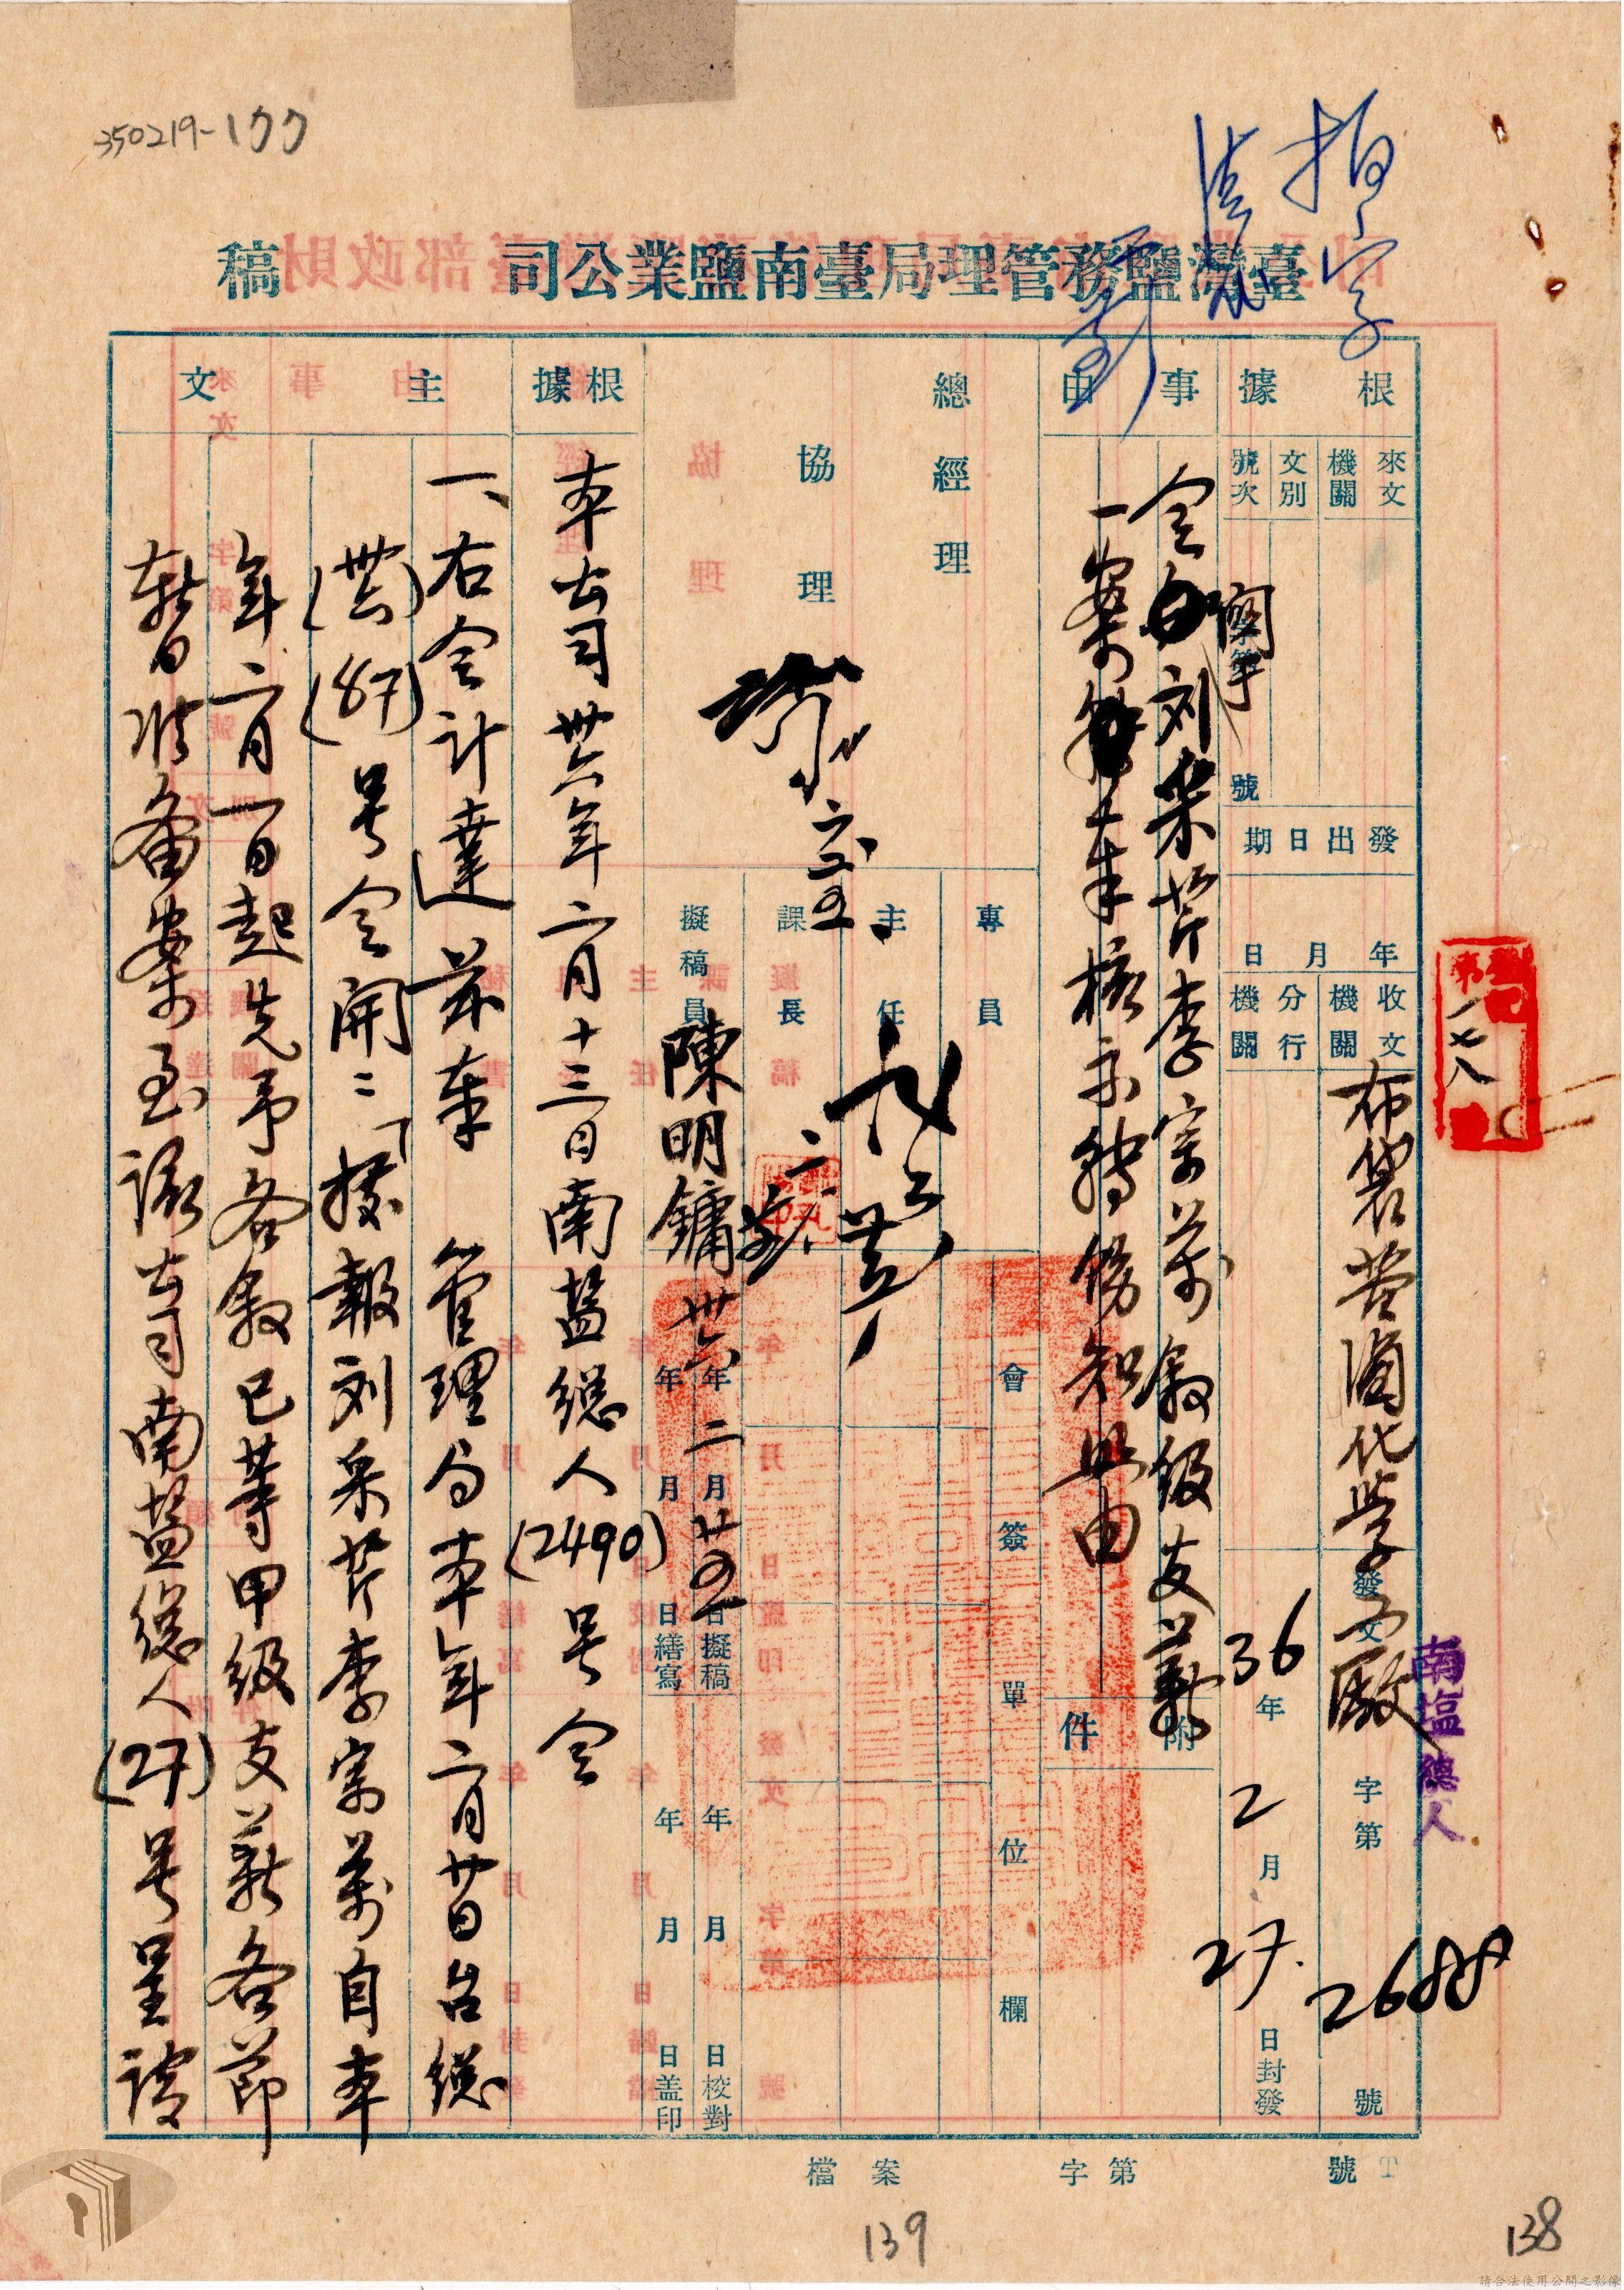 350219-177
臺灣鹽務管理局臺南鹽業公司 稿
根據
來文機關
文別
號次
號
發出日期
年月日
收文機關
分行機關
布袋苦滷化學工廠
發文
南塩總人
字第
2688
號
36年2月27日封發
事由
令自刘采芹李宗万敘級支薪
一案奉核示轉飭知照由
附件
總經理
協理
專員
主任
課長
擬稿員
陳明鏞
會簽單位欄
卅六年二月廿五日擬稿
年月日繕寫
年月日校對
年月日蓋印
根據
本公司卅六年二月十三日南盐總人(2490)号令
主文
一、右令計達兹奉 管理局本年二月廿日台總
(卅六)(87)号令開:「據報刘采芹李宗万自本
年二月一日起先予各敘已等甲級支薪各節
暫准备案至該公司南盐總人(27)号呈請
檔案
字第
號
139
138
請合法使用公開之影像